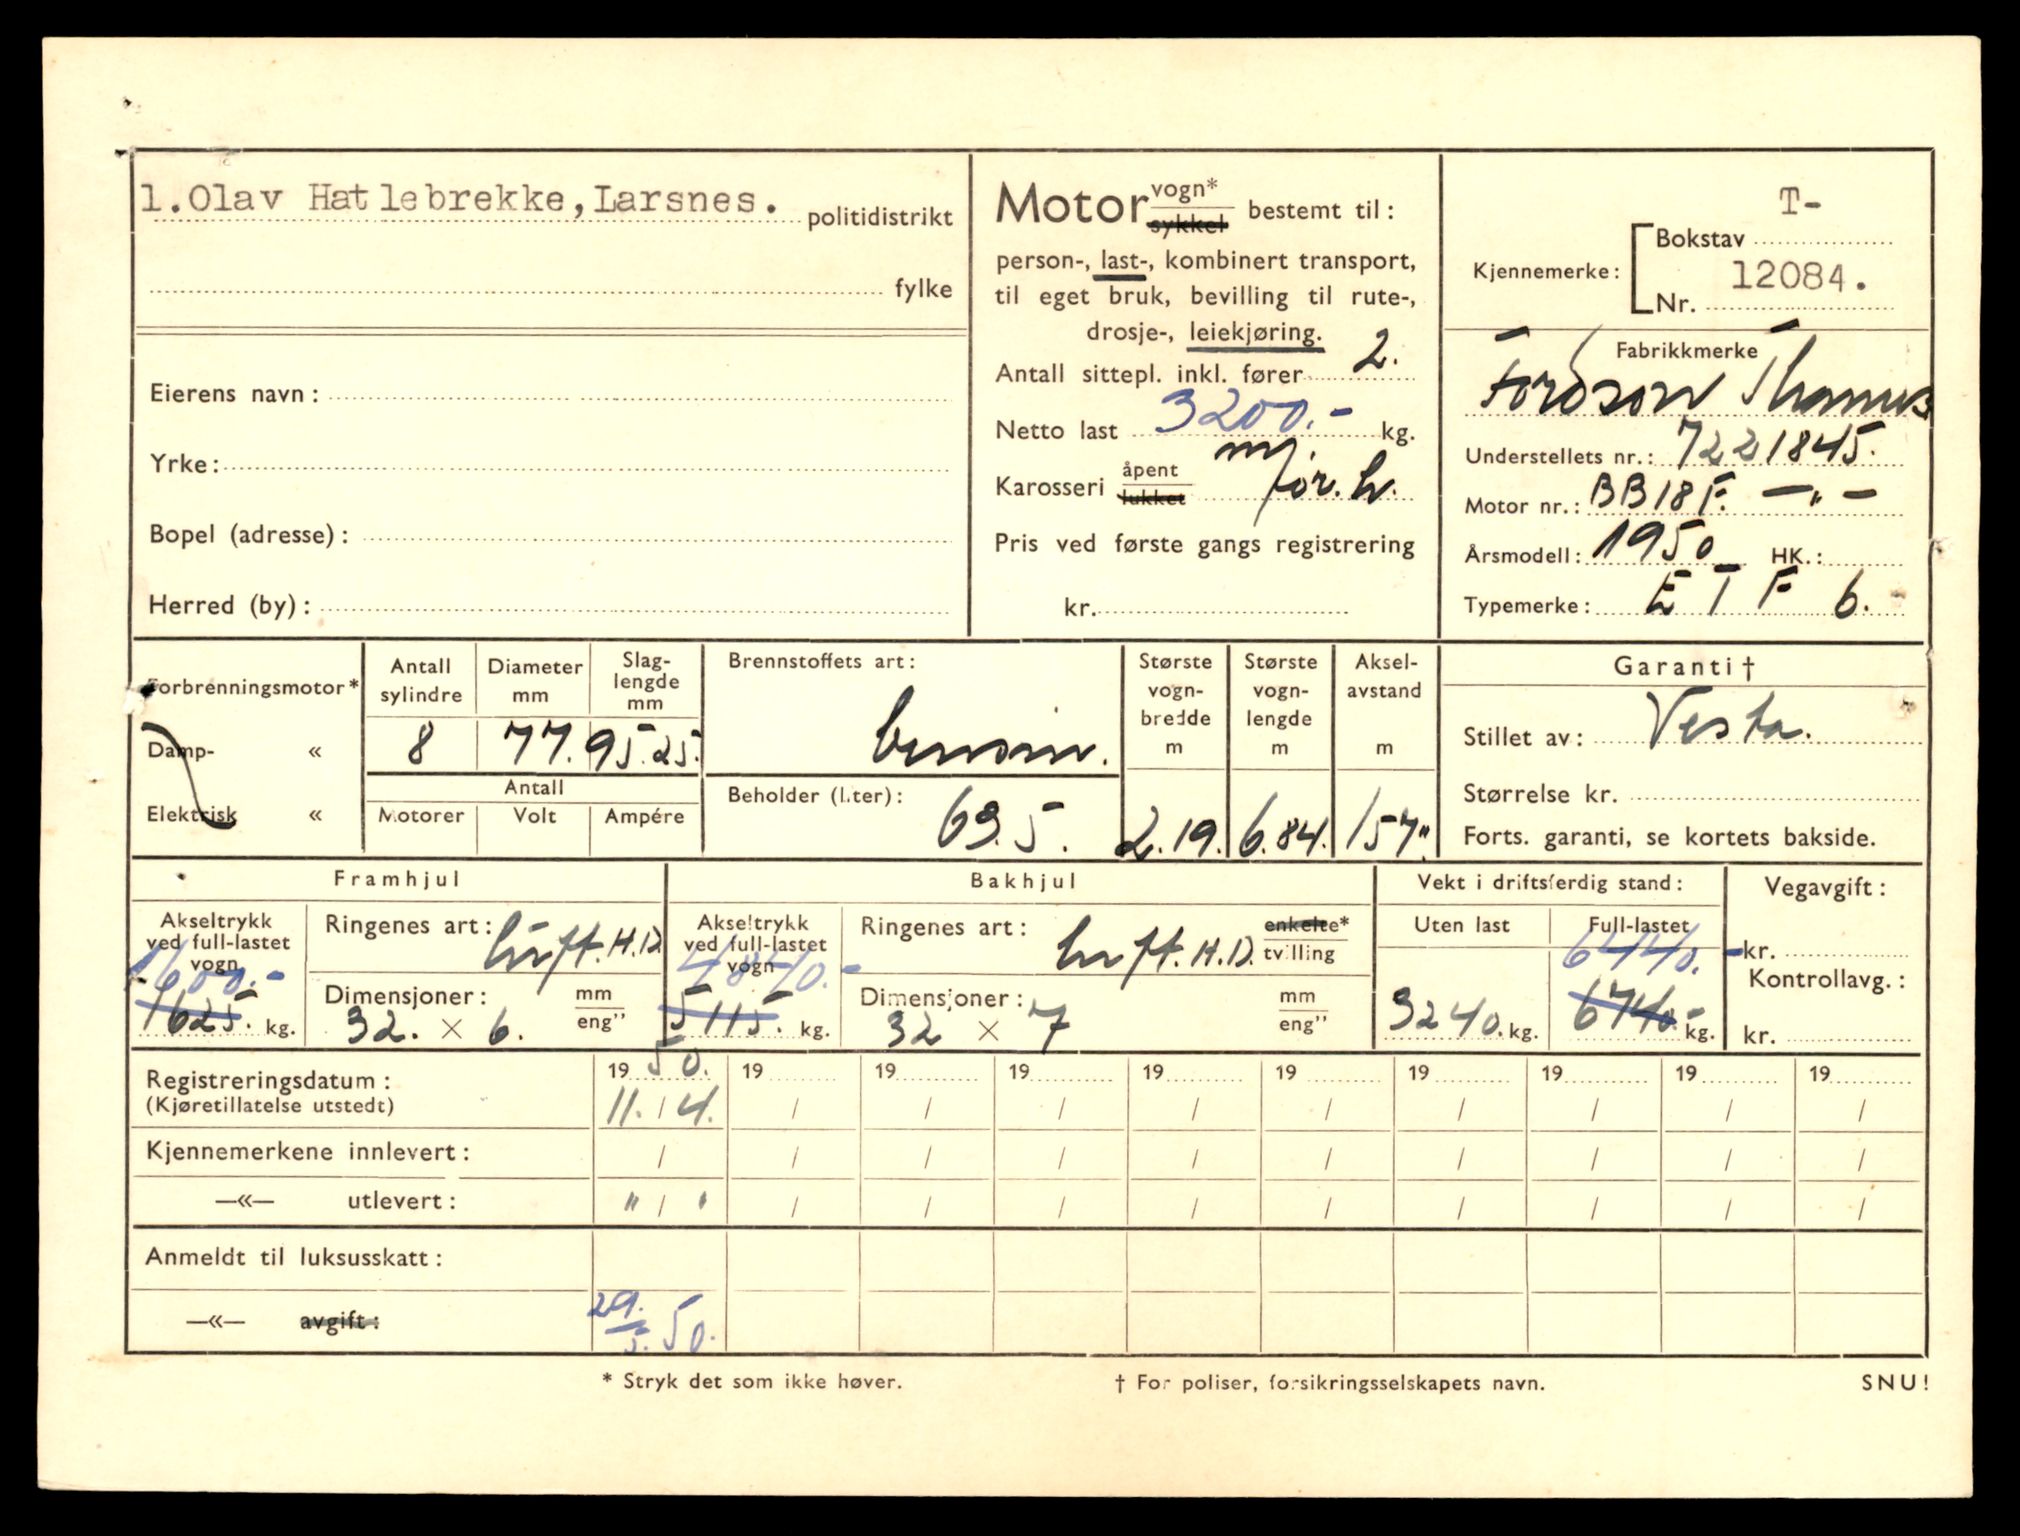 1. Olav Hatlebrekke, Larsnes. politidistrikt
fylke
Eierens navn:
Yrke:
Bopel (adresse):
Herred (by):
Motor vogn* sykkel bestemt til:
person-, last-, kombinert transport,
til eget bruk, bevilling til rute-,
drosje-, leiekjøring.
Antall sittepl. inkl. fører 2.
Netto last 3200.- kg.
Karosseri åpent lukket m/ før.h.
Pris ved første gangs registrering
kr.
T-
Kjennemerke: Bokstav
12084.
Nr.
Fabrikkmerke
Fordson Thames
Understellets nr.: 7221845.
Motor nr.: BB18F. —„—
Årsmodell: 1950 HK.:
Typemerke: E T F 6.
Forbrenningsmotor*
Damp- «
Elektrisk «
Antall sylindre
8
Diameter mm
77.
Slag-lengde mm
95.25.
Antall
Motorer Volt Ampére
Brennstoffets art:
bensin.
Beholder (liter): 69.5.
Største vogn-bredde m
2.19.
Største vogn-lengde m
6.84.
Aksel-avstand m
157"
Garanti †
Stillet av: Vesta.
Størrelse kr.
Forts. garanti, se kortets bakside.
Framhjul
Akseltrykk ved full-lastet vogn
1600.-
1625. kg.
Ringenes art: luft. H.D.
Dimensjoner: mm eng"
32. × 6.
Bakhjul
Akseltrykk ved full-lastet vogn
4840.-
5115. kg.
Ringenes art: luft. H.D. enkelte* tvilling
Dimensjoner: mm eng"
32 × 7
Vekt i driftsferdig stand:
Uten last
3240. kg.
Full-lastet
6440.-
6740.- kg.
Vegavgift:
kr.
Kontrollavg.:
kr.
Registreringsdatum: 19 50. 19 19 19 19 19 19 19 19 19
(Kjøretillatelse utstedt) 11. / 4. / / / / / / / / /
Kjennemerkene innlevert: / / / / / / / / / /
—«— utlevert: " / " / / / / / / / / /
Anmeldt til luksusskatt:
—«— avgift: 29./5. 50.
* Stryk det som ikke høver.
† For poliser, forsikringsselskapets navn.
SNU!